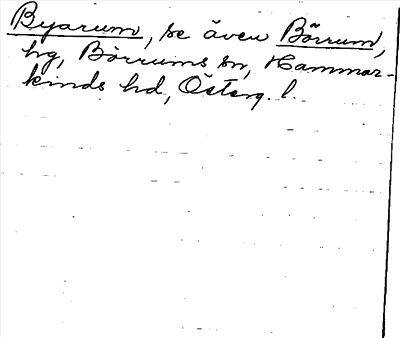 Byarum, se även Börrum,
hg, Börrums sn, Hammar-
kinds hd, Österg. l.